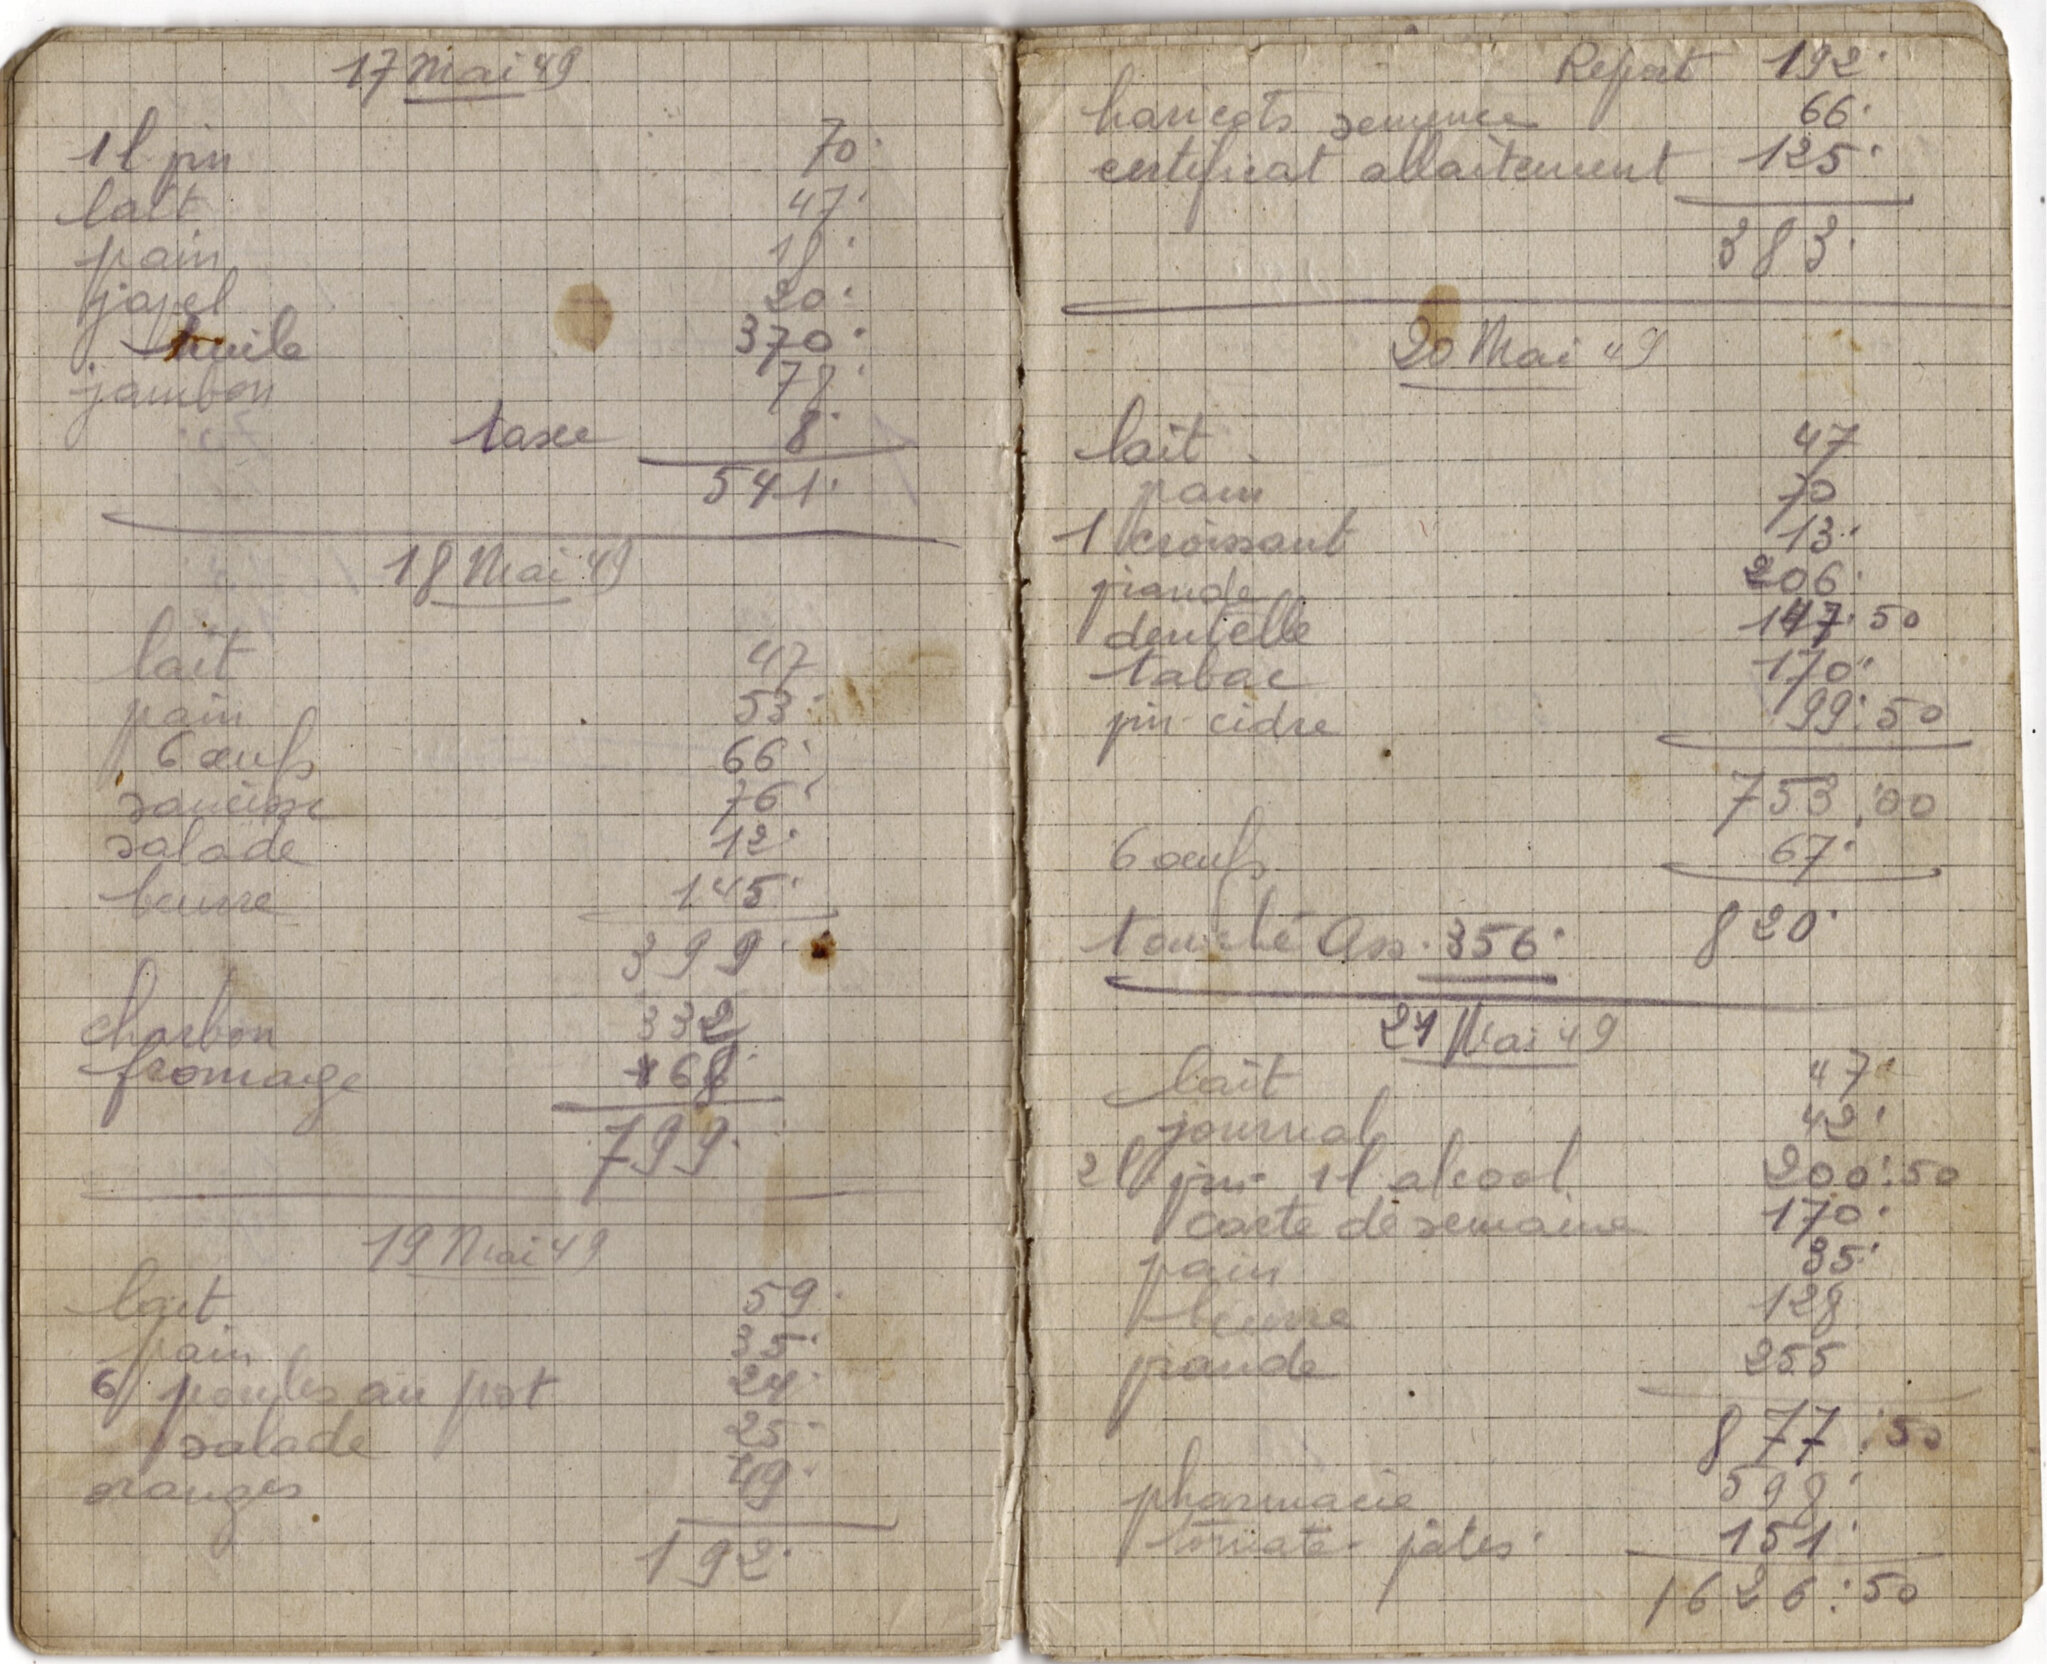 17 Mai 49
1 l vin 70.
lait 47.
pain 18.
javel 20.
huile 370.
jambon 78.
taxe 8.
541.
18 Mai 49
lait 47
pain 53.
6 œufs 66.
saucisse 76.
salade 12.
beurre 145.
399.
charbon 332
fromage 68.
799.
19 Mai 49
lait 59.
pain 35.
6 poules au pot 24.
salade 25.
oranges 49.
192.
Report 192.
haricots semence 66.
certificat allaitement 125.
383.
20 Mai 49
lait 47
pain 70
1 croissant 13.
viande 206.
dentelle 147.50
tabac 170.
vin cidre 99.50
753.00
6 œufs 67.
touché Ass. 356. 820.
21 Mai 49
lait 47.
journal 42.
2 l vin 1 l alcool 200.50
carte de semaine 170.
pain 35.
beurre 128
viande 255
877.50
pharmacie 598.
tomate pâtes. 151.
1626.50